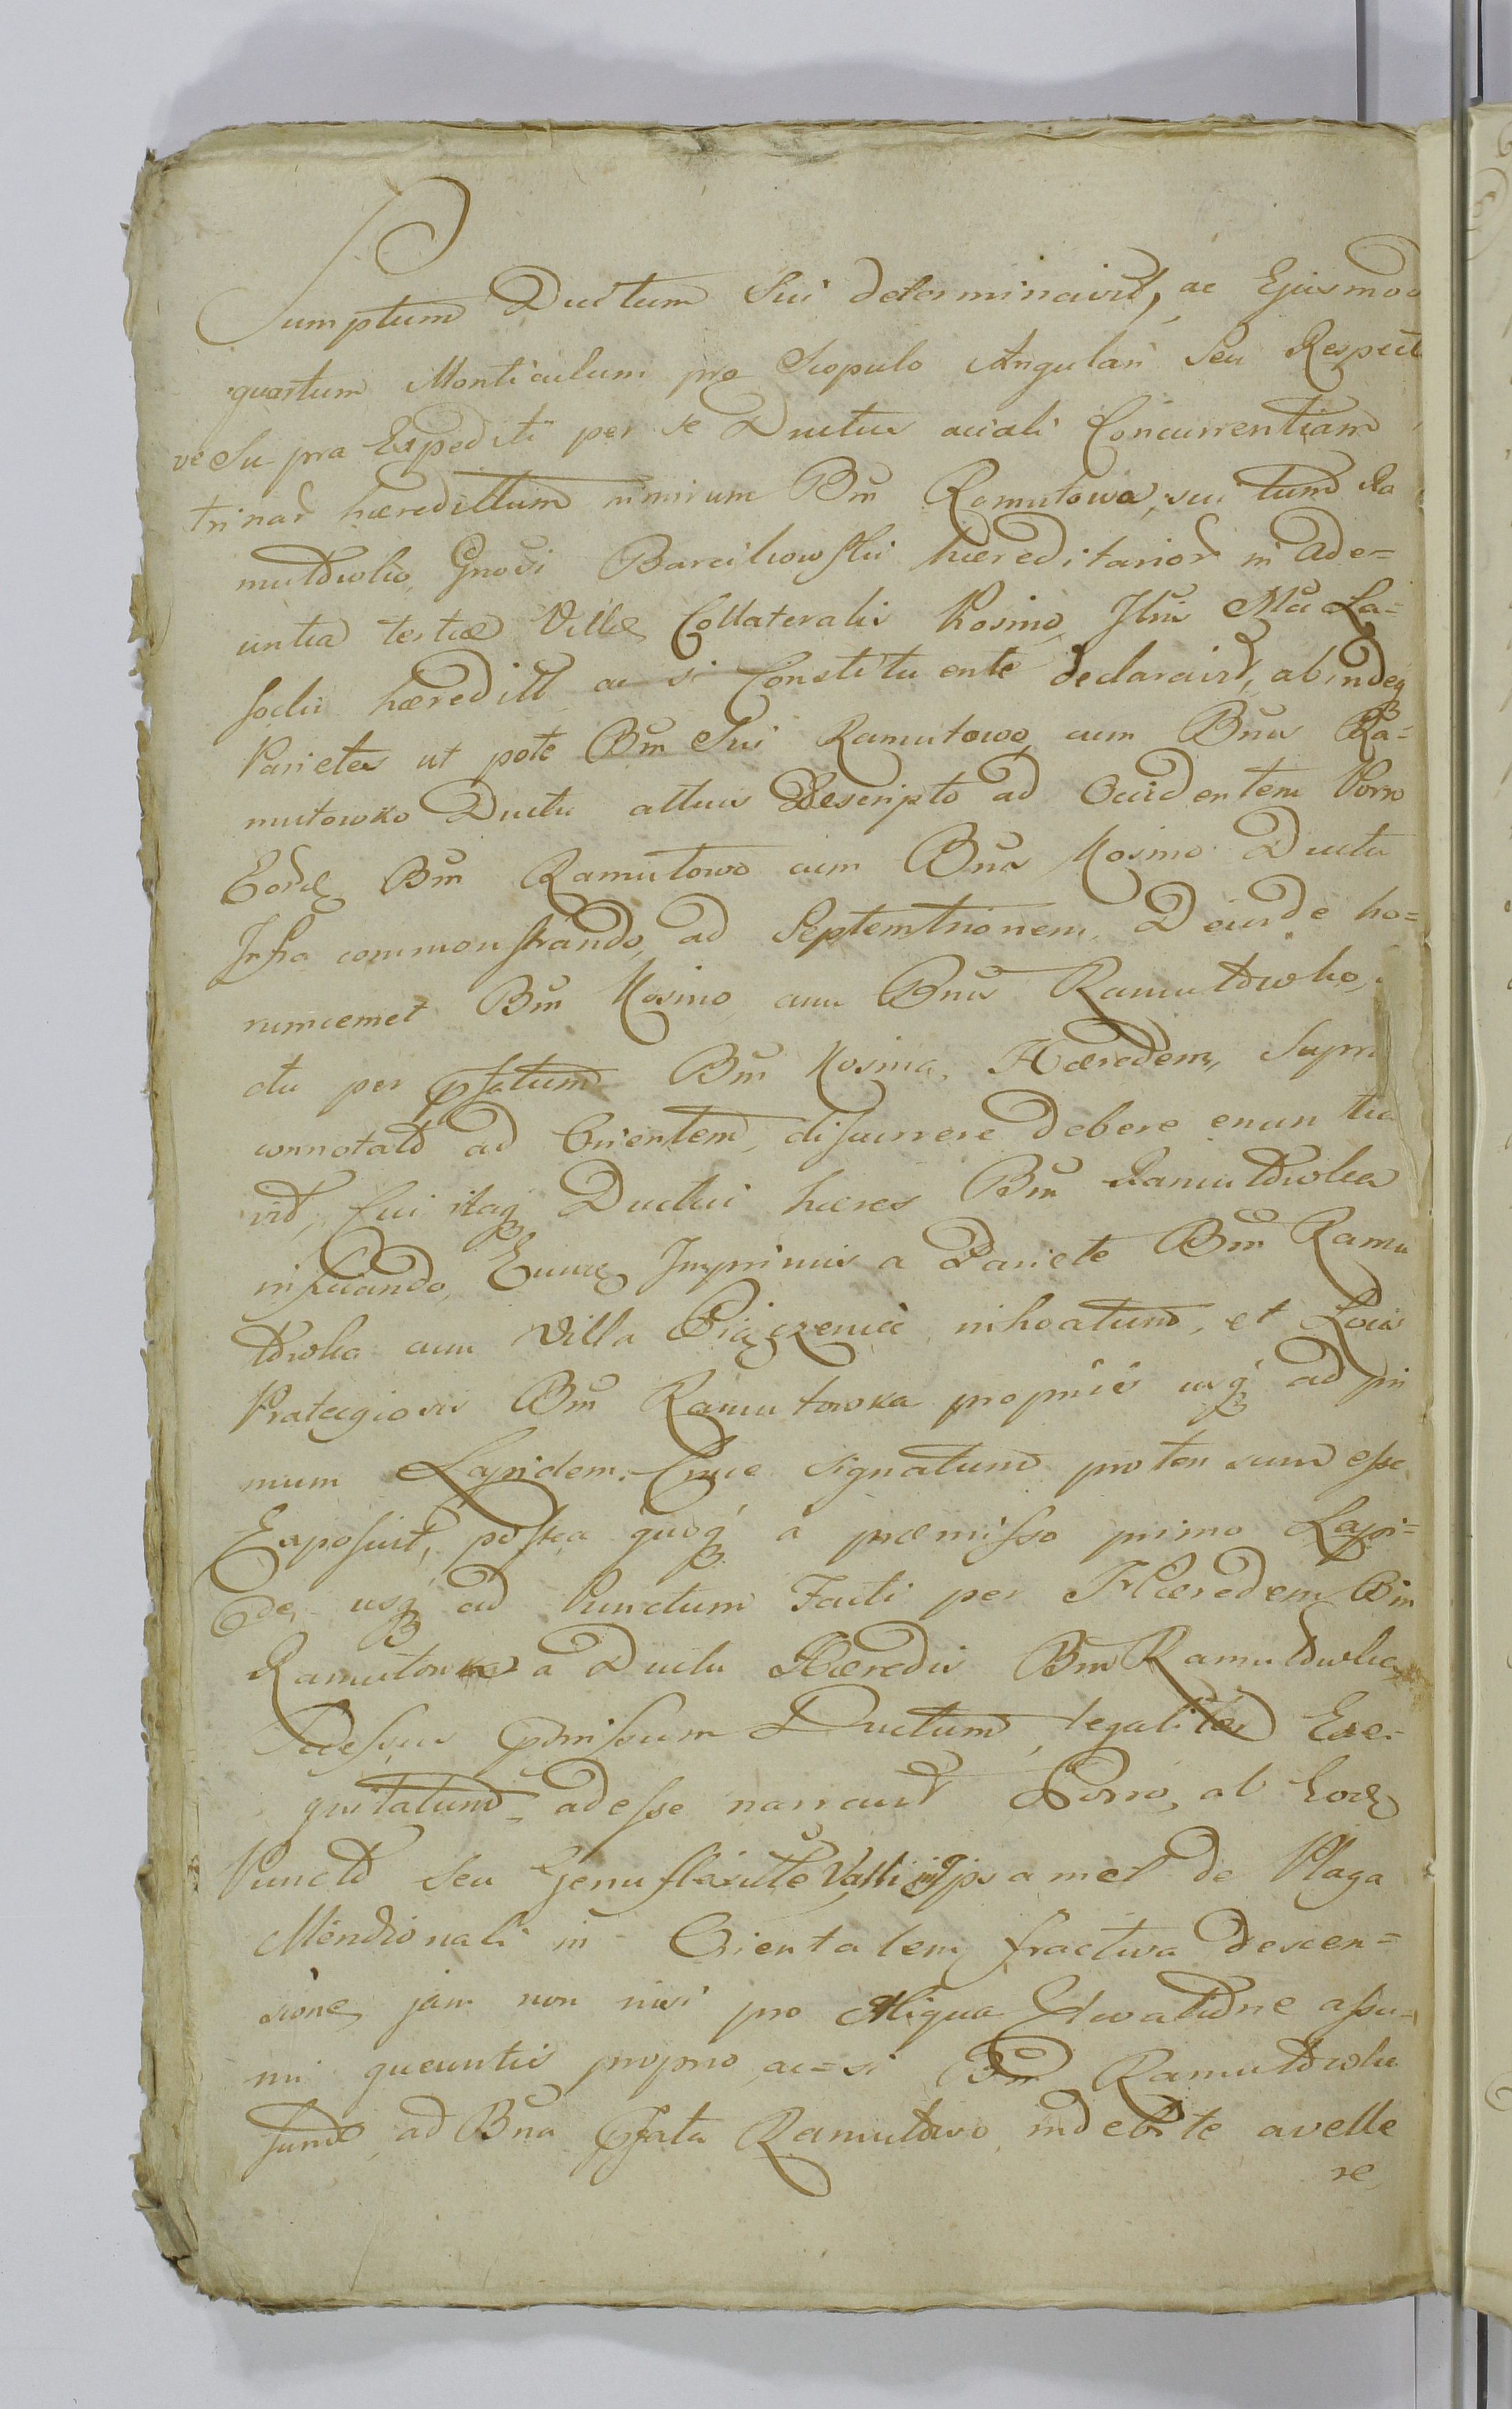 Sumptum Ductum Sui determinavit, ac Ejusmodi
quartum Monticulum pro Scopulo Angulari Seu Respecti
ve Supra Expediti per se Ductus aciali Concurrentiam
trinar hæredittum nimirum Bm̃ Ramutowa, sui tum Ra
mutowko, Gnosi Barcikowskii hæreditarior in Ade=
untia tertiæ Villæ Collateralis Kosino, Illm̃i Mci La=
socki hæreditt ac si Constituente declaravit, abindeq
Parietes ut pote Bm̃ Sui Ramutowo, cum Bnis Ra=
mutowko Ductu altius Descripto ad Occidentem Porro
Eorde Bm̃ Ramutowo cum Bnis Kosino Ductu
Infra commonstrando, ad Septemtrionem, Deinde ho=
rumcemet Bm̃ Kosino, cum Bnis Ramutowko,
ctu per pfatum Bm̃ Kosina, Hæredem, Supra
connotato ad Orientem, discurrere debere enuntia
vit, Cui itaq Ductui hæres Bm̃ Ramutowka
inficiando, Eunde Imprimis a Pariete Bm̃ Ramu
towka cum Villa Piączenice inhoatum, et Locis
Prategiosis Bm̃ Ramutowka propriis usq ad pri
mum Lapidem Cruce signatum protensum esse
Exposuit, postea quoq a præmisso primo Lapi=
de, usq ad Punctum Facti per Hæredem Bm̃
Ramutowka a Ductu Hæredis Bm̃ Ramutowka
Recessus pmissum Ductum, legaliter Exe=
quitatum, adesse narravit Porro, ab Eode
Puncto seu Genuflexite Valli in Ipsamet de Plaga
Meridionali in Orientalem fractiva descen=
sione, jam non nisi pro Aliqua Elevatione assu=
mi queuntis proprio, ac=si Bm̃ Ramutowka
fundo, ad Bna pfata Ramutowo, indebite avelle
re